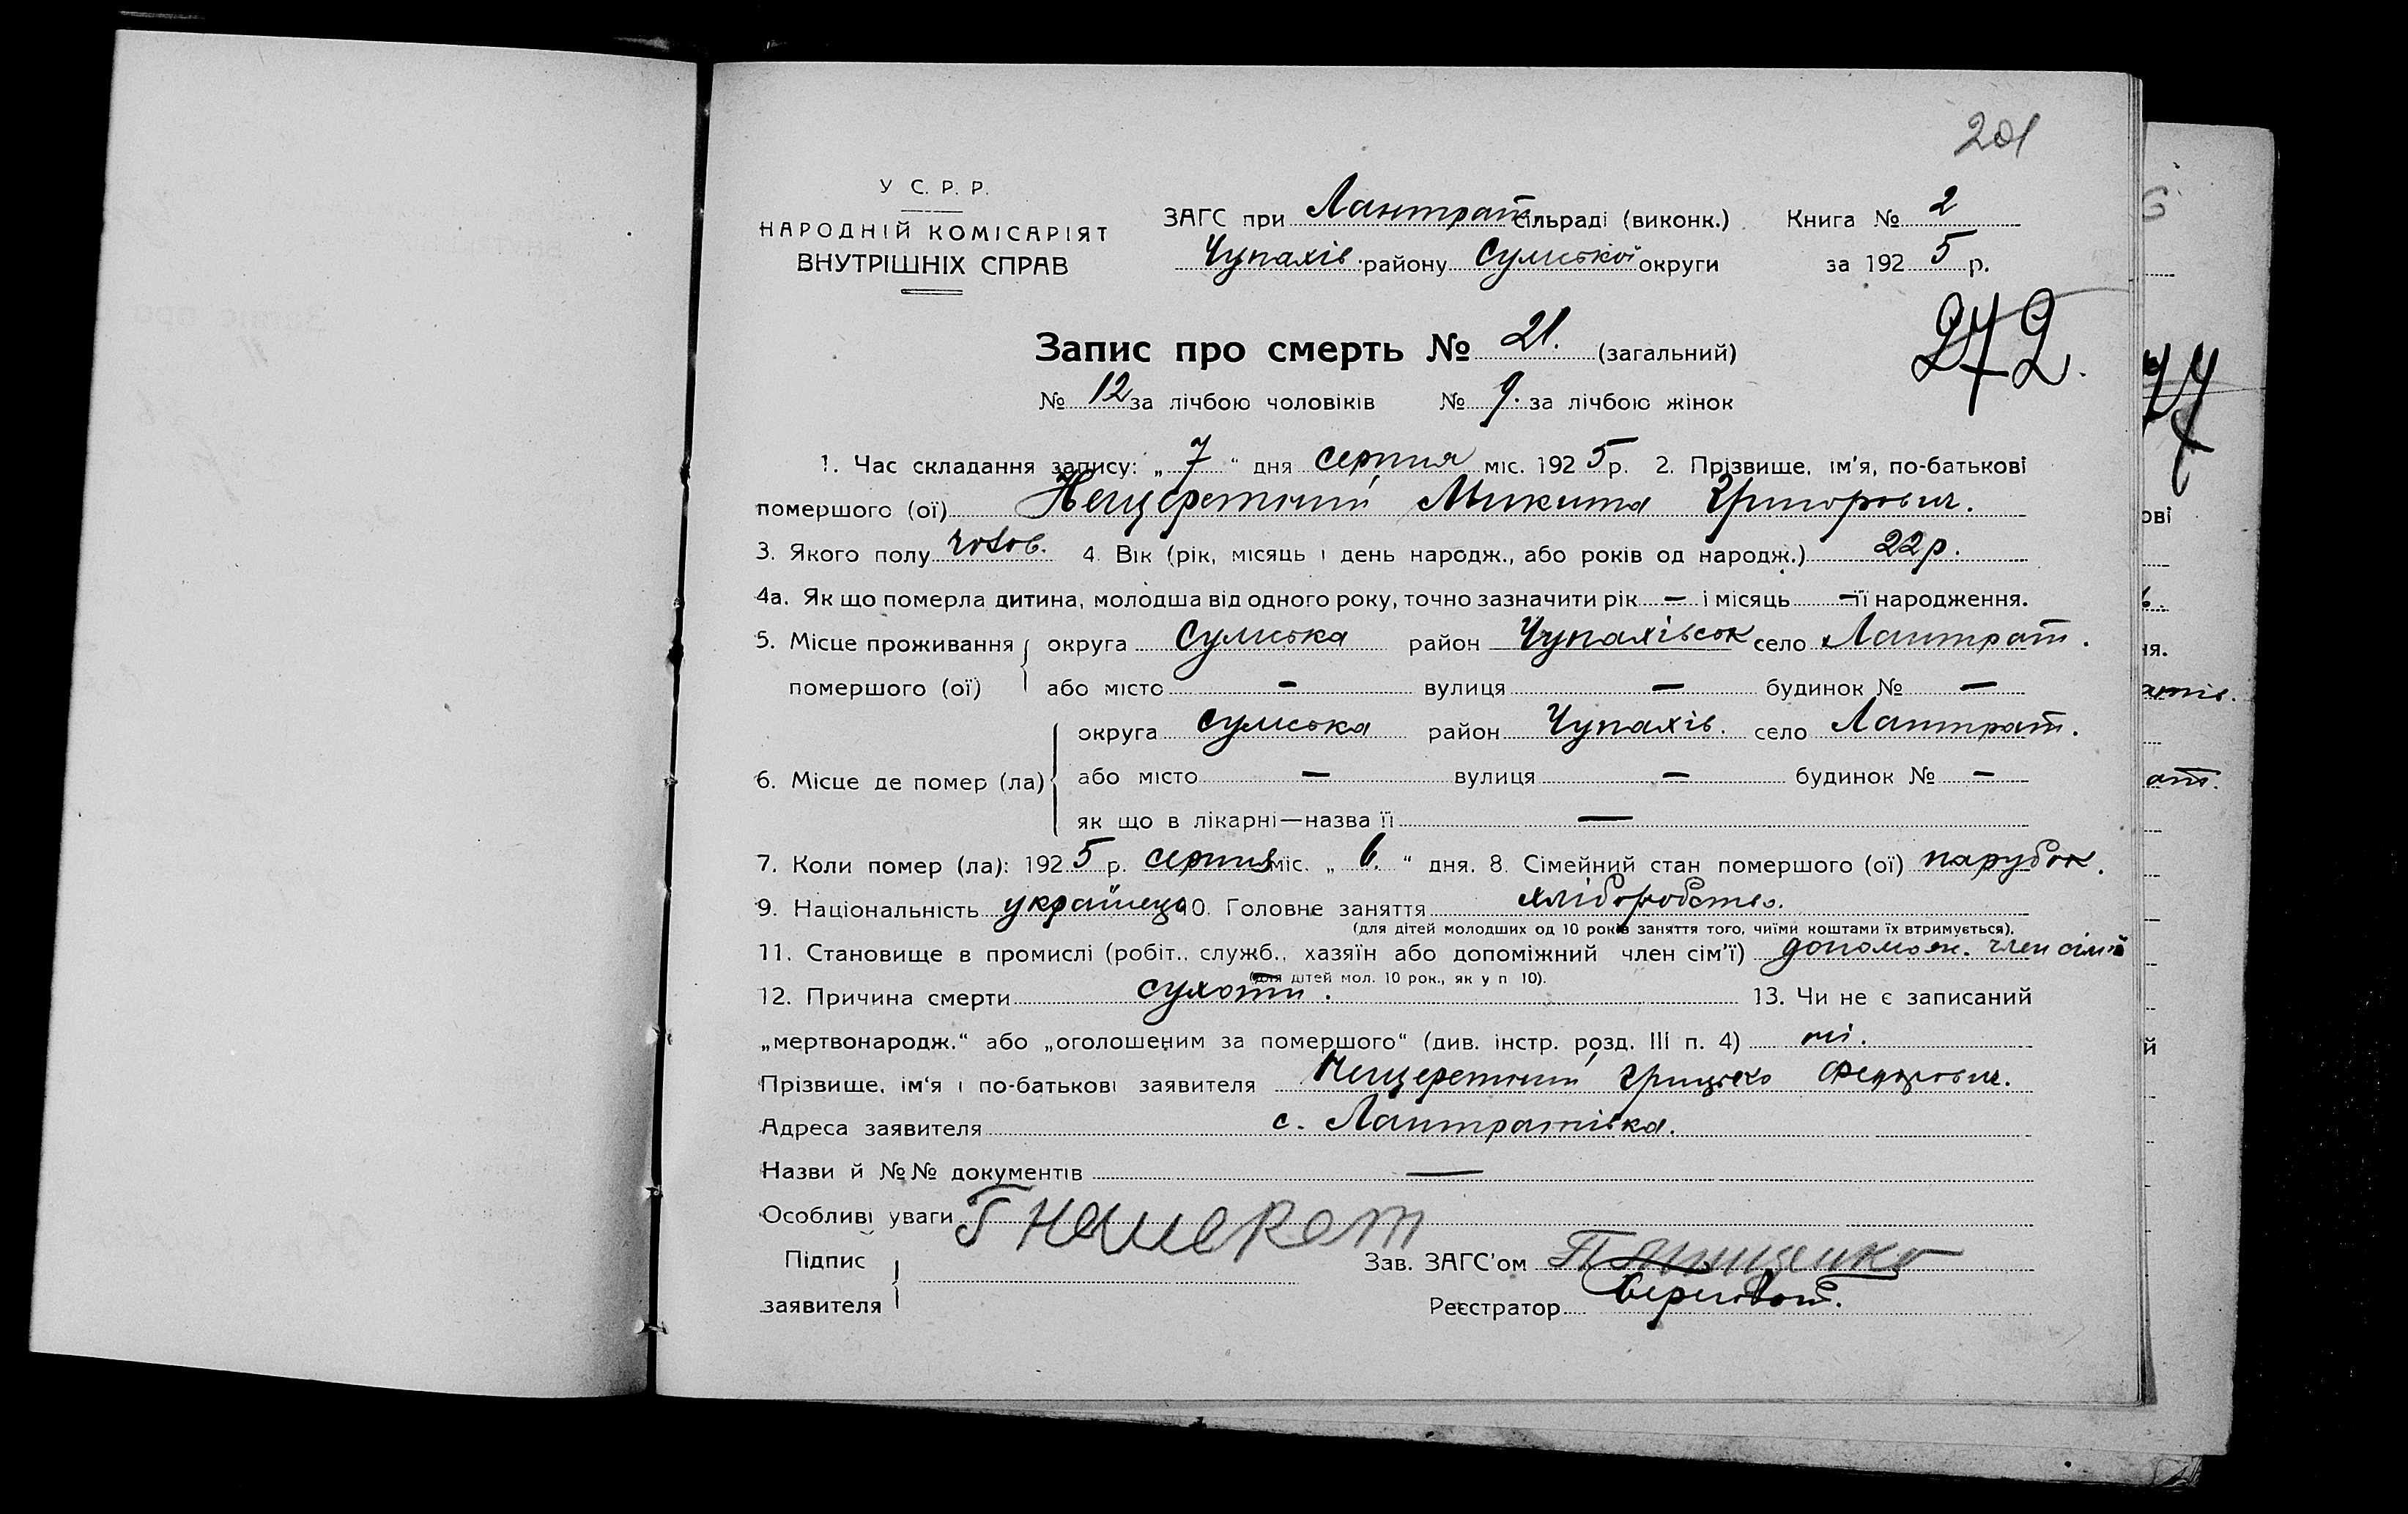 201
У С. Р. Р.
НАРОДНІЙ КОМІСАРІЯТ
ВНУТРІШНІХ СПРАВ
ЗАГС при Лантрат. сільраді (виконк.) Книга № 2
Чупахів. району Сумської округи за 1925 р.
272.
Запис про смерть № 21. (загальний)
№ 12 за лічбою чоловіків № 9. за лічбою жінок
1. Час складання запису: „ 7 “ дня серпня міс. 1925 р. 2. Прізвище, ім'я, по-батькові
помершого (ої) Нещеретний Микита Григорович.
3. Якого полу чолов. 4. Вік (рік, місяць і день народж., або років од народж.) 22 р.
4а. Як що померла дитина, молодша від одного року, точно зазначити рік — і місяць — її народження.
5. Місце проживання округа Сумська район Чупахівськ село Лантрат.
помершого (ої) або місто — вулиця — будинок № —
округа Сумська район Чупахів. село Лантрат.
6. Місце де помер (ла) або місто — вулиця — будинок № —
як що в лікарні—назва її —
7. Коли помер (ла): 1925 р. серпня міс. „ 6. “ дня. 8. Сімейний стан помершого (ої) парубок.
9. Національність українець 10. Головне заняття хліборобство.
(для дітей молодших од 10 років заняття того, чиїми коштами їх втримується).
11. Становище в промислі (робіт., служб., хазяїн або допоміжний член сім'ї) допомож. член сім'ї
(для дітей мол. 10 рок., як у п 10).
12. Причина смерти сухоти. 13. Чи не є записаний
„мертвонародж.“ або „оголошеним за помершого“ (див. інстр. розд. III п. 4) ні.
Прізвище, ім'я і по-батькові заявителя Нещеретний Грицько Федорович.
Адреса заявителя с. Лантратівка.
Назви й №№ документів —
Особливі уваги
Підпис
заявителя
Зав. ЗАГС'ом
Реєстратор